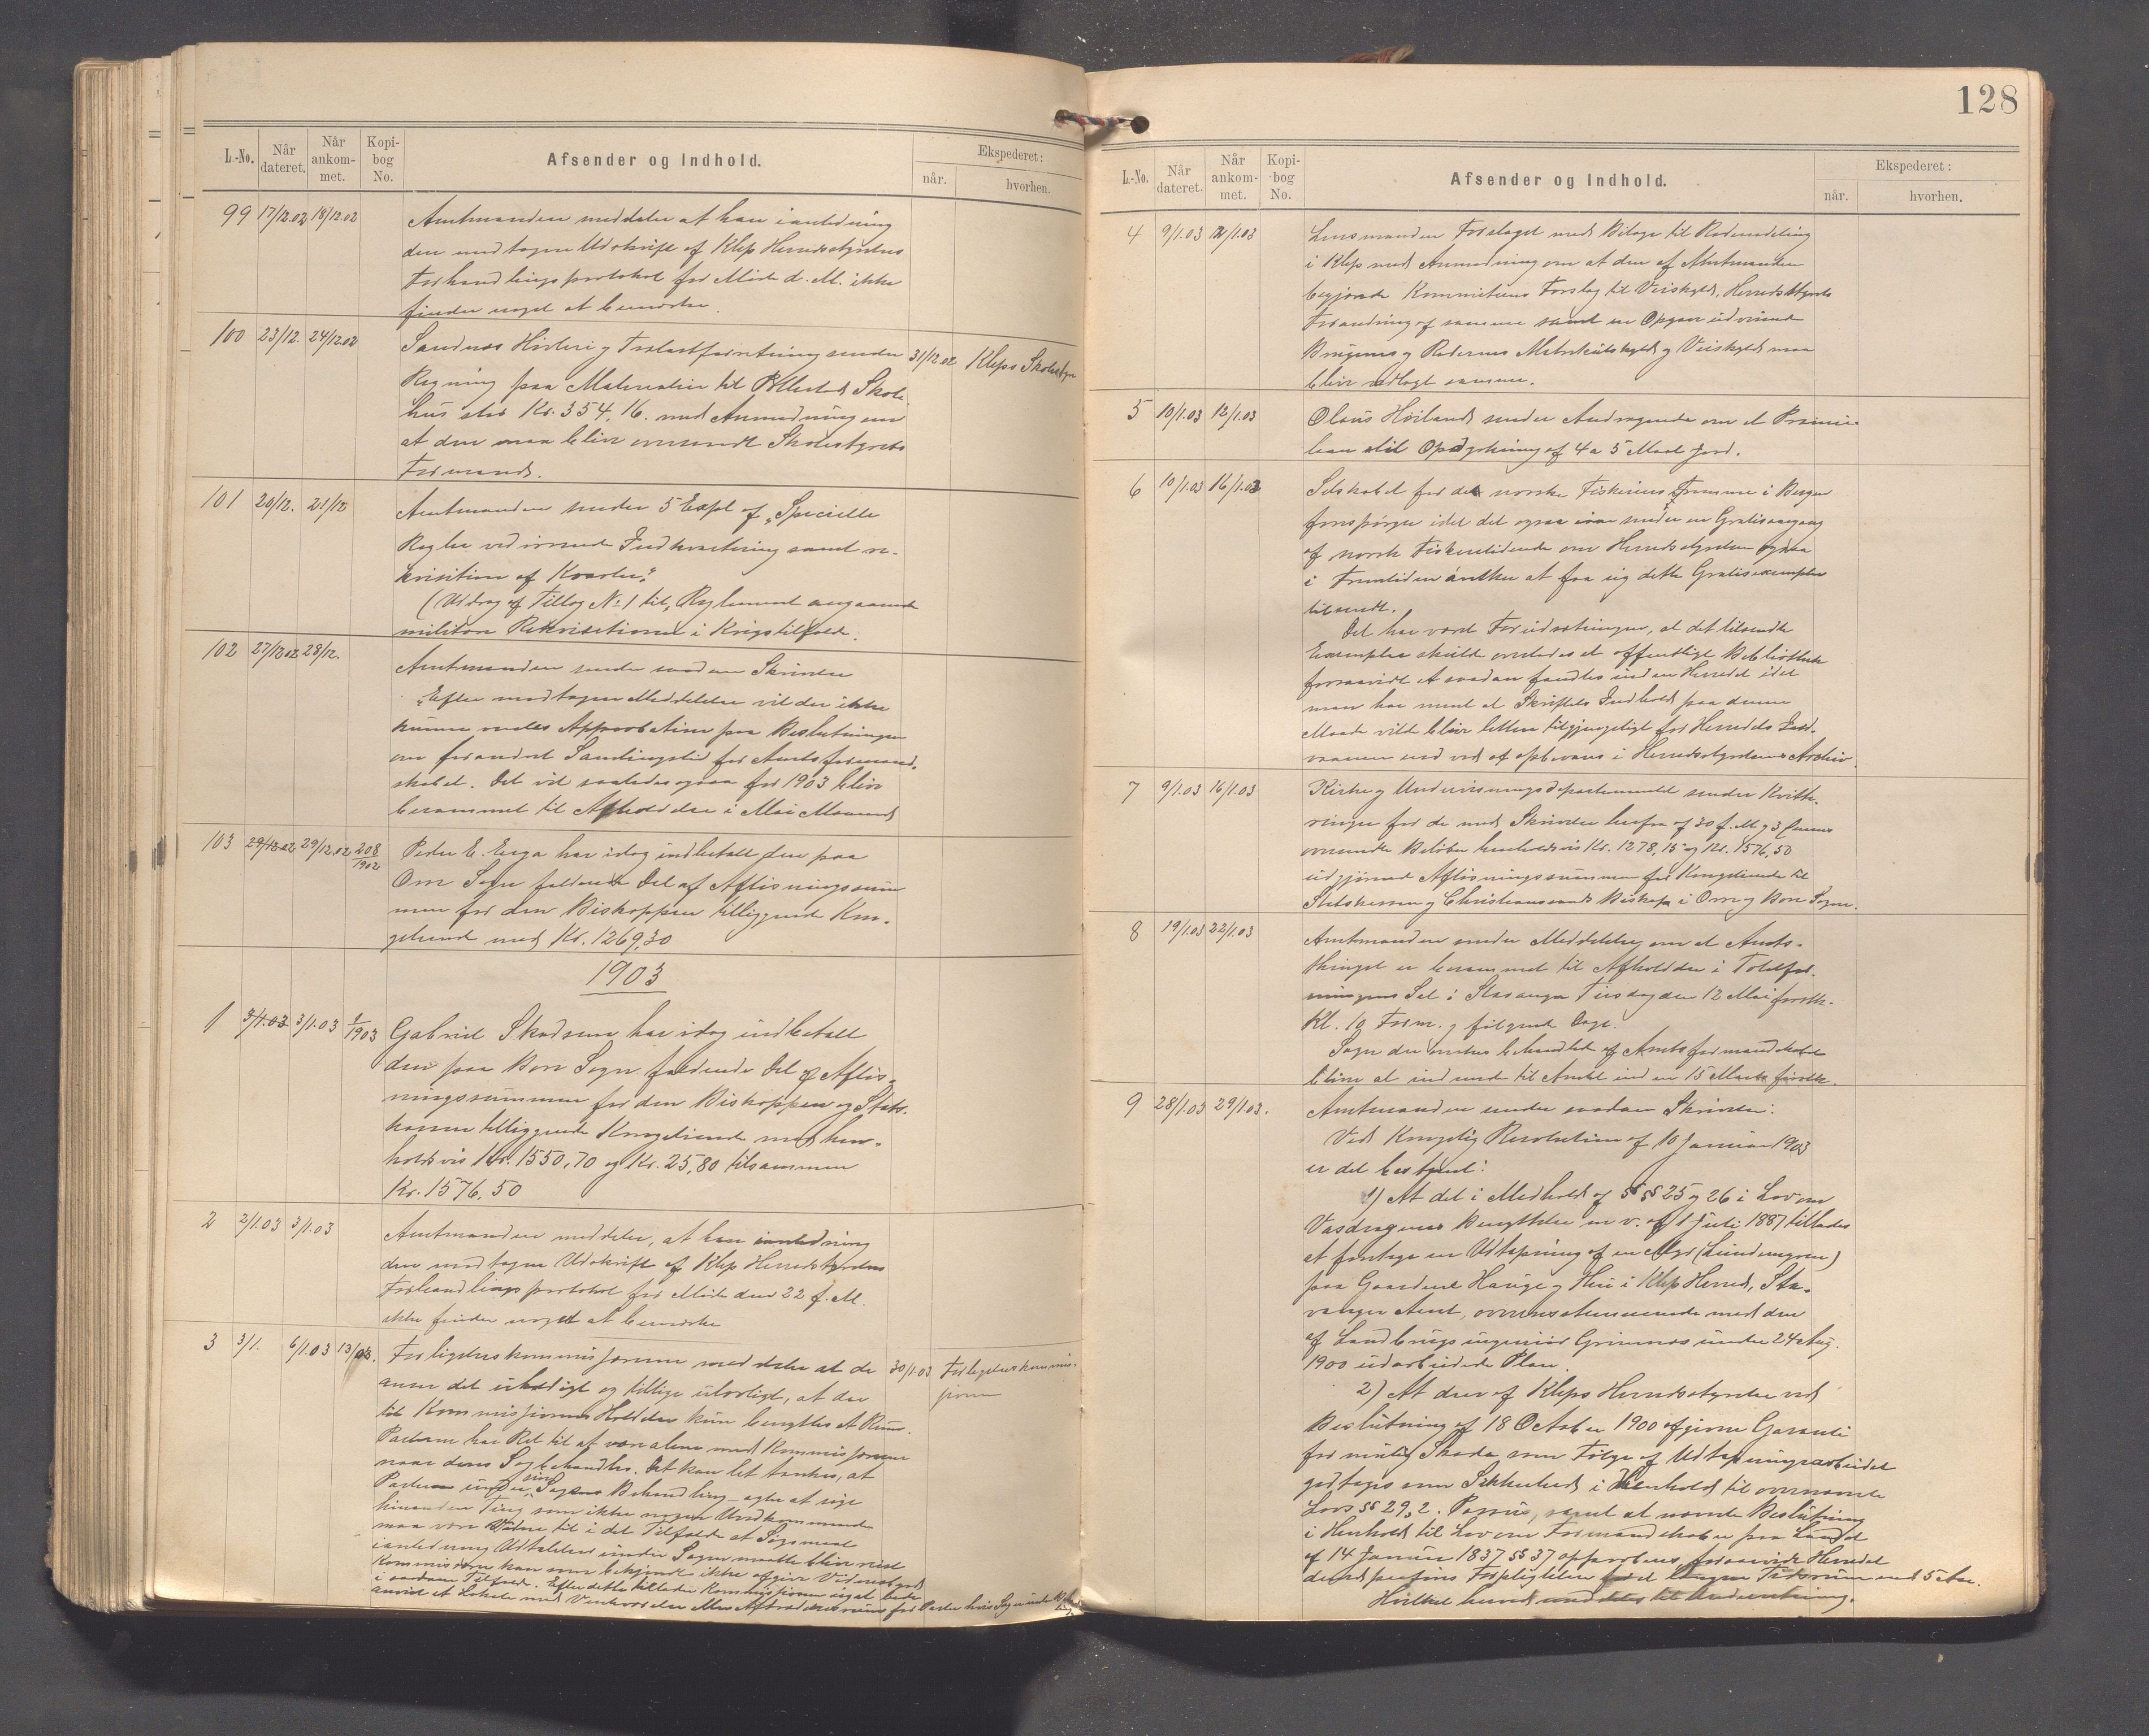 L.-No. Når dateret. Når ankommet. Kopibog No. Afsender og Indhold. Ekspederet: når. hvorhen.
99 17/12.02 18/12.02 Amtmanden meddeler at han i anledning
den modtagne Udskrift af Klep Herredsstyrelses
Forhandlingsprotokol for Møde d. M. ikke
finder noget at bemærke.
100 23/12. 24/12.02 Sandnes Høvleri og Trælastforretning sender 31/12.02 Kleps Skolestyre
Regning paa Materialier til Skole
hus stor Kr. 354,16. med Anmodning om
at den maa blive oversendt Skolestyrets
Formand.
101 20/12. 21/12 Amtmanden sender 5 Expl af „Specielle
Regler vedrørende Indkvartering samt re-
kvisition af Kvarter"
(Udrag af Tillæg No 1 til „Reglement angaaende
militære Rekvisitioner i Krigstilfælde.
102 27/12 02 28/12. Amtmanden sender saadan Skrivelse
„Efter modtagen Meddelelse vil der ikke
kunne ventes Approbation paa Beslutningen
om forandret Samlingstid for Amtsformand-
skabet. Det vil saaledes ogsaa for 1903 blive
berammet til Afholdelse i Mai Maaned
103 29/12 02 29/12.02 208/1902 Peder E. Erga har idag indbetalt den paa
Orre Sogn faldende Del af Afløsningssum
men for den Biskoppen tilliggende Kon-
getiende med Kr. 1269,30
1903
1 3/1.03 3/1.03 1/1903 Gabriel Skadsem har idag indbetalt
den paa Bore Sogn faldende Del af Afløs-
ningssummen for den Biskoppen og Stats-
kassen tilliggende Kongetiende med hen-
holdsvis Kr. 1550,70 og Kr. 25,80 tilsammen
Kr. 1576,50
2 2/1.03 3/1.03 Amtmanden meddeler, at han i anledning
den modtagne Udskrift af Klep Herredsstyrelses
Forhandlingsprotokol for Møde den 22 f. M.
ikke finder noget at bemærke
3 3/1. 6/1.03 13/03. Forligelseskommissjonen meddeler at de 30/1.03 Forligelseskommis-
anser det uheldigt og tillige ulovligt, at der sjonen
til Kommissjonens Holdelse kun benyttes et Rum.
Parterne har Ret til at være alene med Kommissjonen
naar deres Sag behandles. Det kan let tænkes, at
Parterne under sin Sags Behandling agter at sige
hinanden Ting som ikke nogen Uvedkommende
maa være Vidne til i det Tilfælde at Søgsmaal
i anledning Udtalelser under Sagen maatte blive reist
Kommissionen kan som bekjendt ikke afgive Vidnesbyrd
i saadant Tilfælde. Efter dette tillader Kommissjonen sig at bede
anvist et Lokale med Venteværelse eller Aftrædelsesrum for Parter hvis Sag
128
L.-No. Når dateret. Når ankommet. Kopibog No. Afsender og Indhold. Ekspederet: når. hvorhen.
4 9/1.03 12/1.03 Lensmanden Forslaget med Bilage til Rodeinddeling
i Klep med Anmodning om at den af Amtmanden
begjærede Kommiteens Forslag til Veiskyld, Herredsstyrets
Forandring af samme samt en Opgave udvisende
Brugenes og Rodernes Matrikulskyld og Veiskyld maa
blive vedlagt samme.
5 10/1.03 12/1.03 Olaus Høiland sender Andragende om et Præmie-
laan til Opdyrkning af 4 a 5 Maal Jord.
6 10/1.03 16/1.03 Selskabet for de norske Fiskeriers Fremme i Bergen
forespørger idet det ogsaa iaar sender en Gratisaargang
af norsk Fiskeritidende om Herredsstyrelsen ogsaa
i Fremtiden ønsker at faa sig dette Gratisexemplar
tilsendt.
Det har været Forudsætningen, at det tilsendte
Exemplar skulde overlades et offentligt Bibliothek
forsaavidt et saadan fandtes inden Herredet idet
man har ment at Skriftets Indhold paa denne
Maade vilde blive lettere tilgjængeligt for Herredets Ind-
vaanere end ved at opbevares i Herredsstyrelsens Archiv.
7 9/1.03 16/1.03 Kirke og Undervisningsdepartementet sender Kvitte-
ringer for de med Skrivelse herfra af 30 f. M. og 3 dennes
oversendte Beløber henholdsvis Kr. 1278,15 og Kr. 1576,50
udgjørende Afløsningssummen for Kongetiende til
Statskassen og Christianssands Biskop i Orre og Bore Sogne.
8 19/1.03 22/1.03 Amtmanden sender Meddelelse om at Amts-
thinget er berammet til Afholdelse i Toldfor-
eningens Sal i Stavanger Tirsdag den 12 Mai førstk.
Kl. 10 Form. og følgende Dage.
Sager der ønskes behandlet af Amtsformandskabet
bliver at indsende til Amtet inden 15 Marts førstk.
9 28/1.03 29/1.03. Amtmanden sender saadan Skrivelse:
Ved Kongelig Resolution af 10 Januar 1903
er det bestemt:
1) At det i Medhold af §§ 25 og 26 i Lov om
Vasdragenes Benyttelse m. v. af 1 Juli 1887 tillades
at foretage en Udtapning af en Myr (Lundemyren)
paa Gaardene Hauge og Hui i Klep Herred, Sta-
vanger Amt, overensstemmende med den
af Landbrugsingeniør Grimnes under 24 Aug.
1900 udarbeidede Plan.
2) At den af Kleps Herredsstyrelse ved
Beslutning af 18 October 1900 afgivne Garanti
for mulig Skade som Følge af Udtapningsarbeidet
godtages som Sikkerhed i Henhold til ovennævnte
Lovs §§ 29, 2. Passus, samt at nævnte Beslutning
i Henhold til Lov om Formandskaber paa Landet
af 14 Januar 1837 §§ 37 approberes, forsaavidt Herredet
derved paaføres Forpligtelser for et længere Tidsrum end 5 Aar.
Hvilket herved meddeles til Underretning.